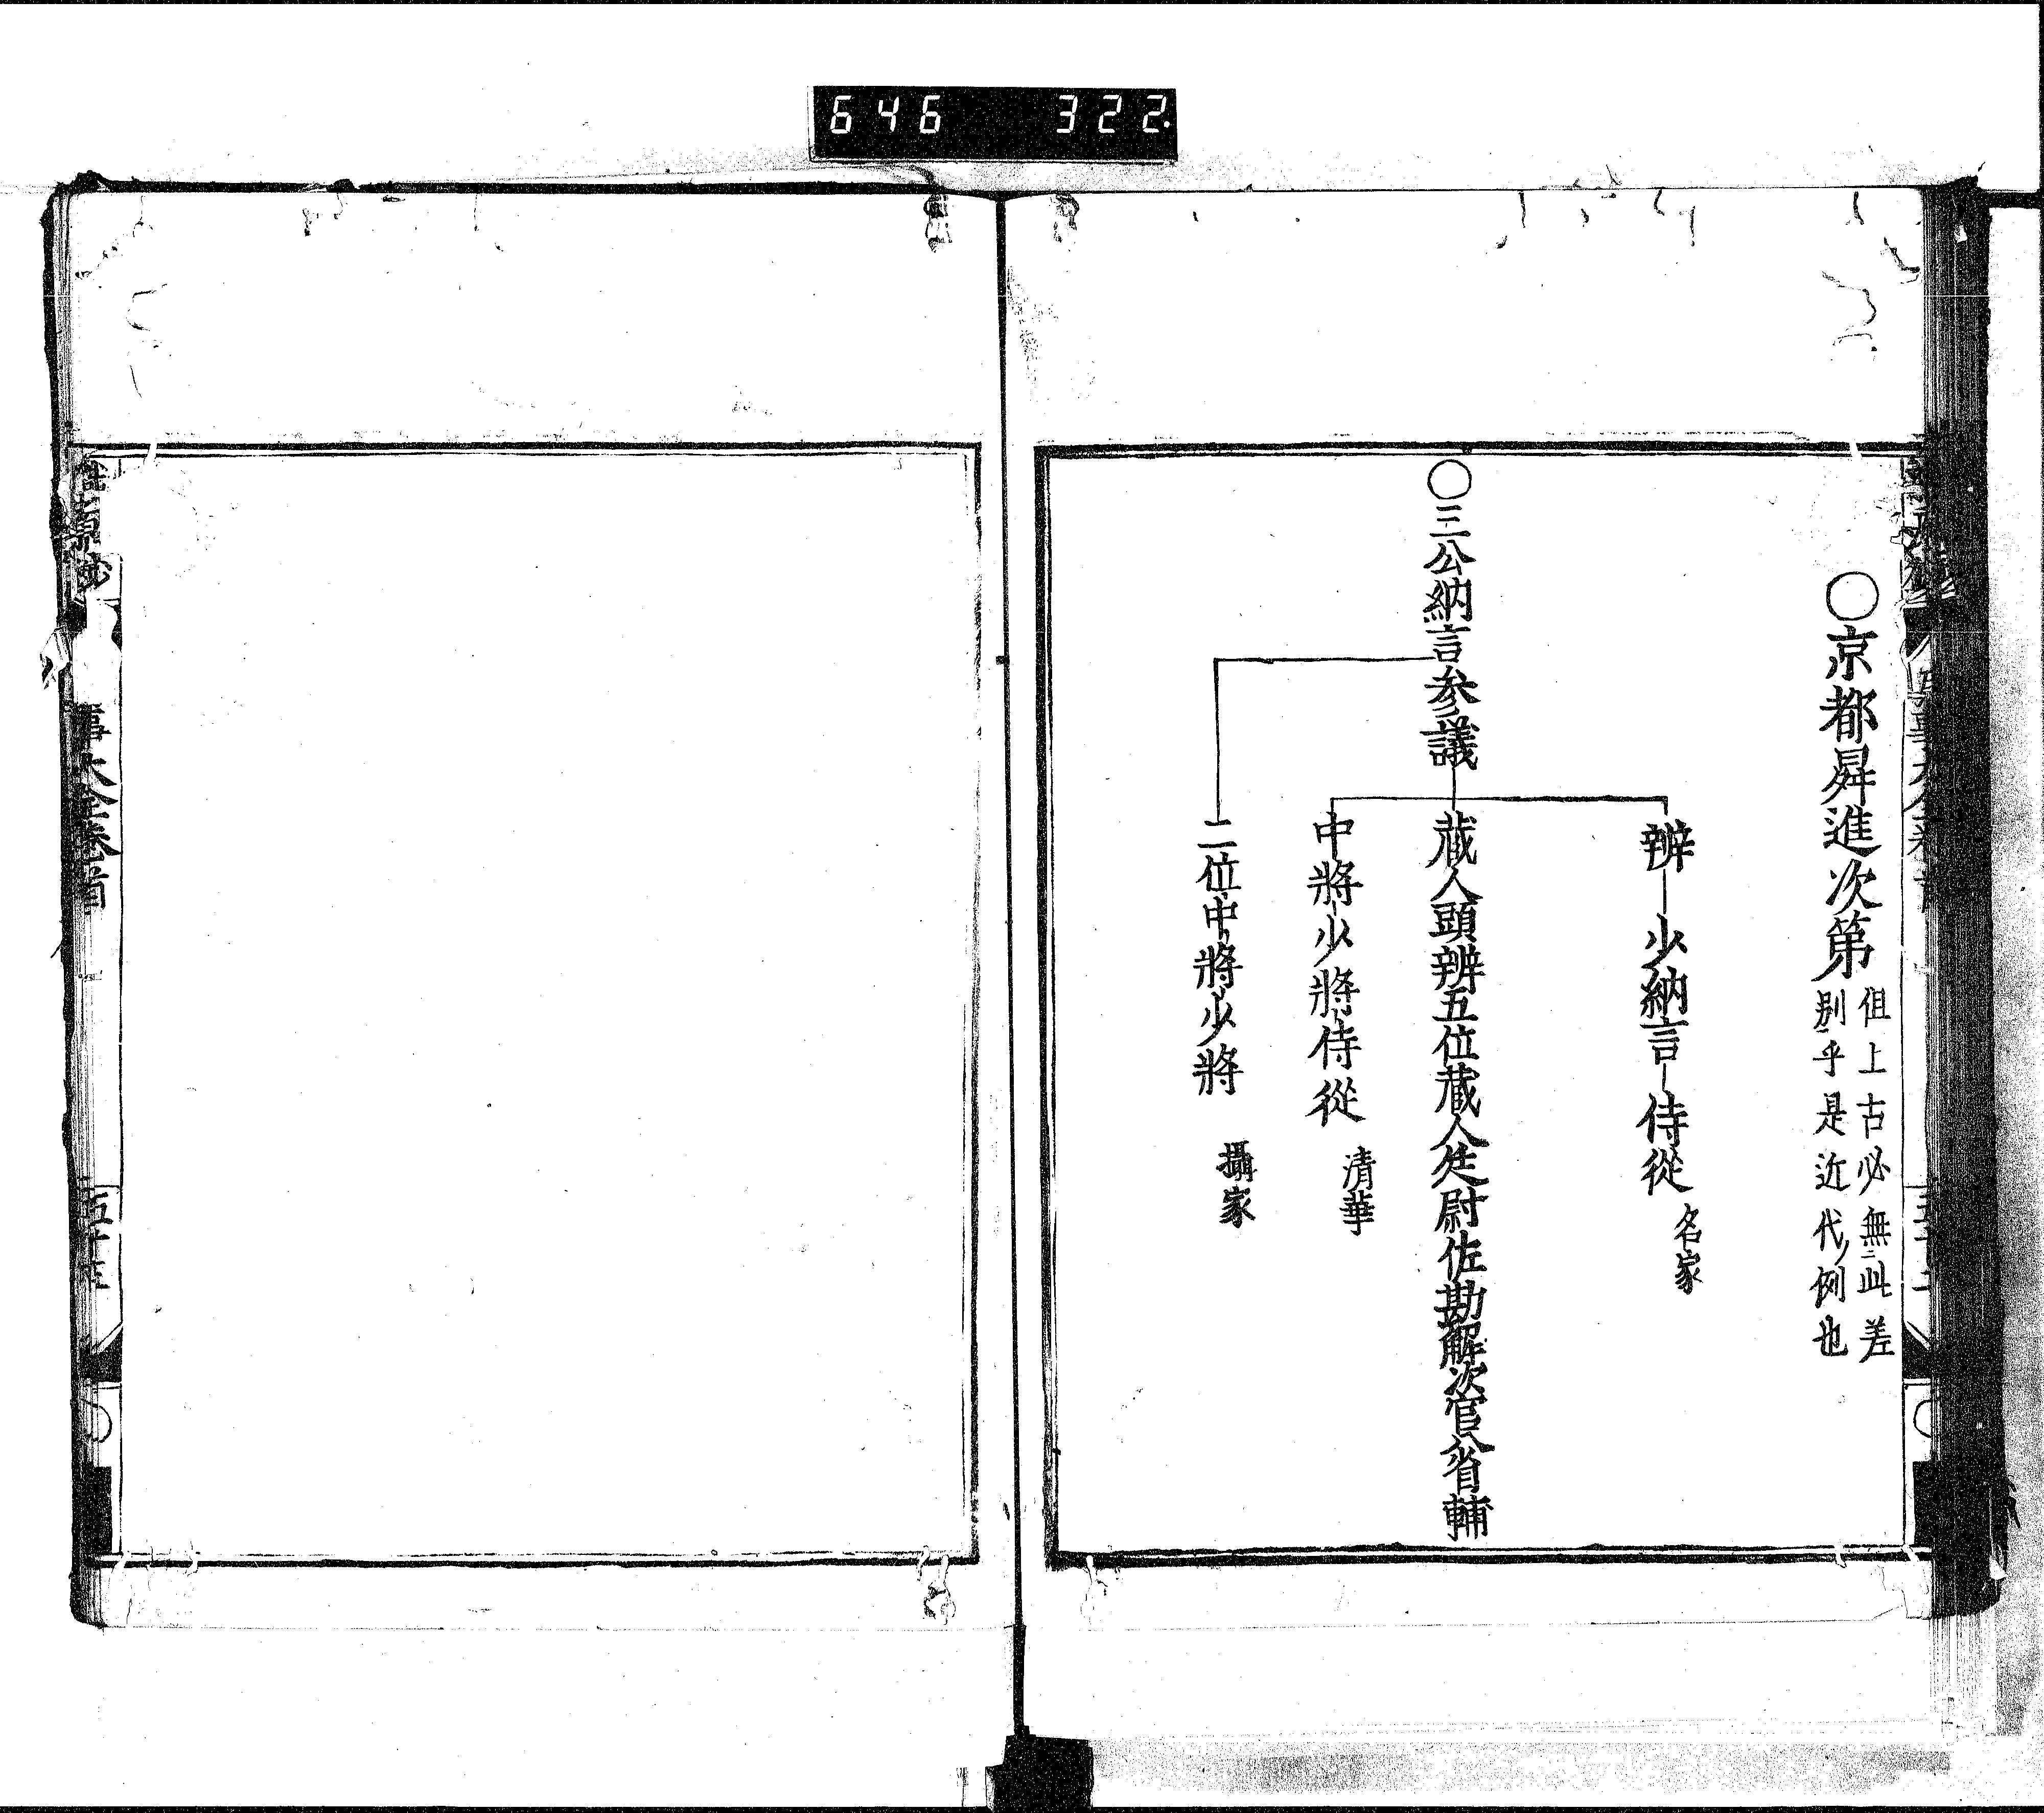 646 322.
○京都昇進次第
但上古必無二此差
別乎是近代ノ例也
○三公納言参議
辨―少納言―侍從 名家
蔵人頭辨五位蔵人廷尉佐勘解次官省輔
中將少將侍從 清華
二位中將少將 攝家
事大全巻首